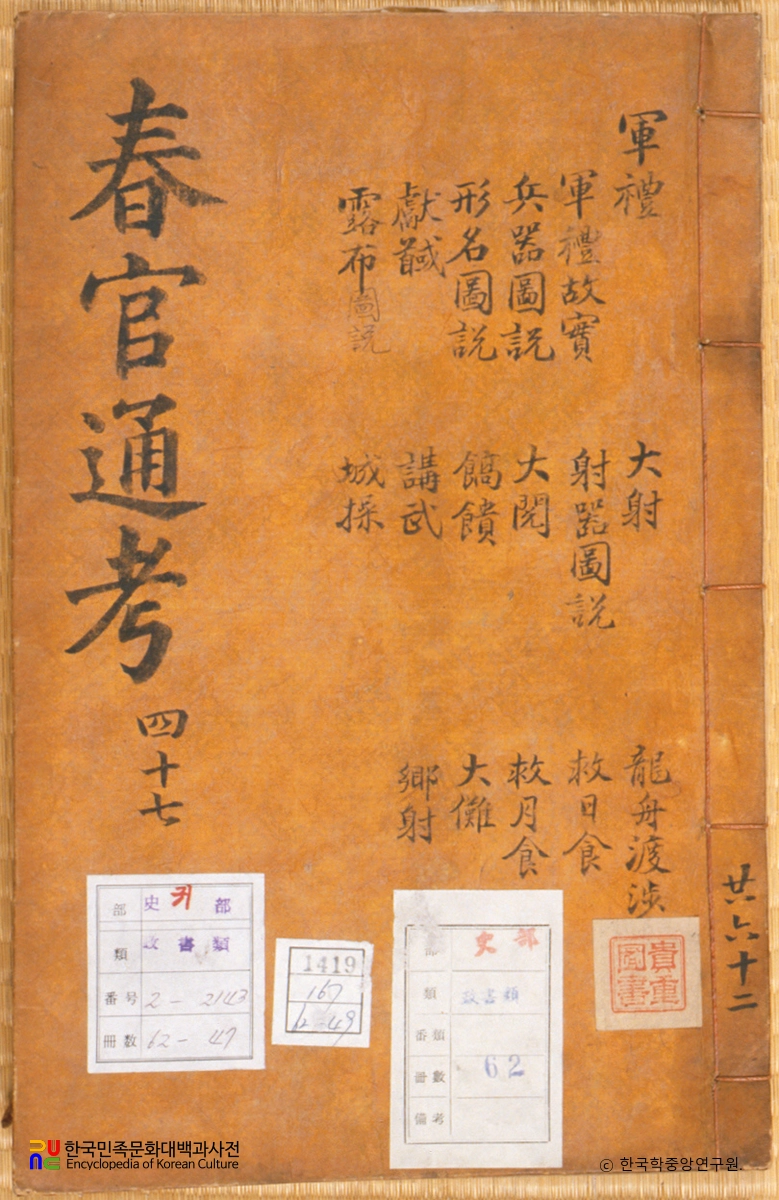 春官通考
四十七
軍禮
軍禮故實
兵器圖説
形名圖説
獻馘
露布圖説
大射
射器圖説
大閱
犒饋
講武
城操
龍舟渡涉
救日食
救月食
大儺
鄉射
共六十二
貴重
圖書
部 史 귀 部
類 政書類
番号 2-2143
冊数 62-47
1419
167
62-49
部 史部
類 政書類
番類
冊數 62
備考
한국민족문화대백과사전
Encyclopedia of Korean Culture
ⓒ 한국학중앙연구원